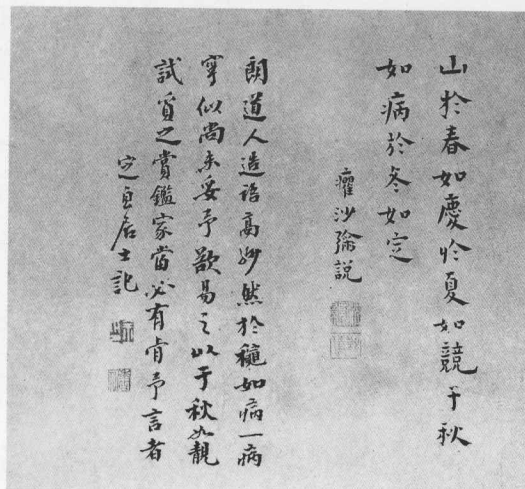 山於春如慶於夏如競于秋
如病於冬如定
癯沙彌說
朗道人造語高妙然於穐如病一病
字似尚未妥予欲易之以于秋如靚
試質之賞鑑家當必有肯予言者
定直居士記